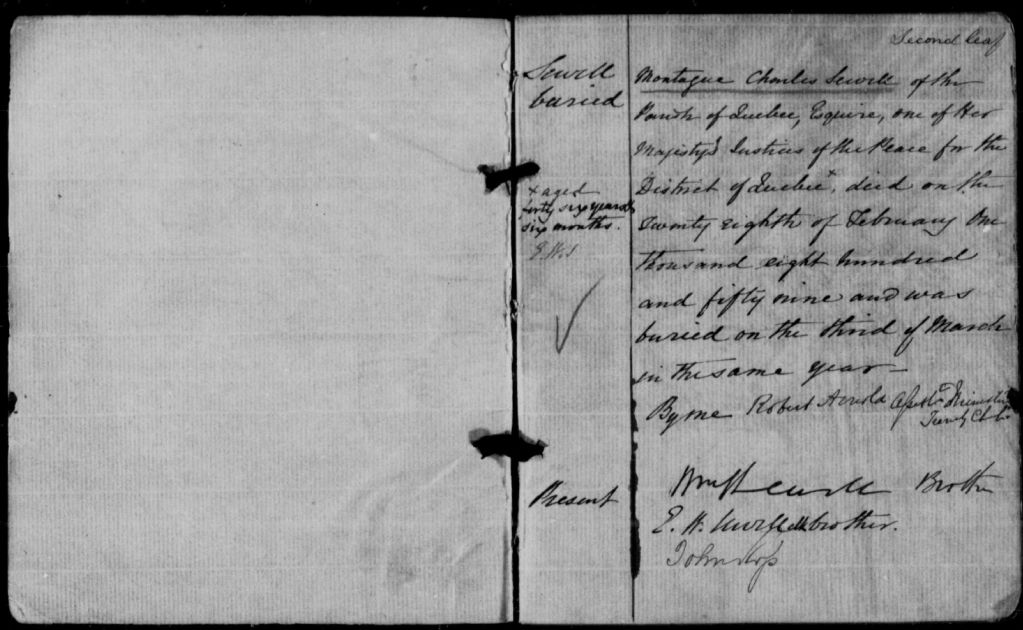 Second leaf
Sewell
buried
+ aged
forty six years
six months.
Montague Charles Sewell of the
Parish of Quebec, Esquire, one of Her
Majesty's Justices of the Peace for the
District of Quebec+, died on the
Twenty eighth of February One
thousand eight hundred
and fifty nine and was
buried on the third of March
in the same year—
By me Robert Arnold
Present
Sewell Brother
E. W. Sewell brother.
John Ross